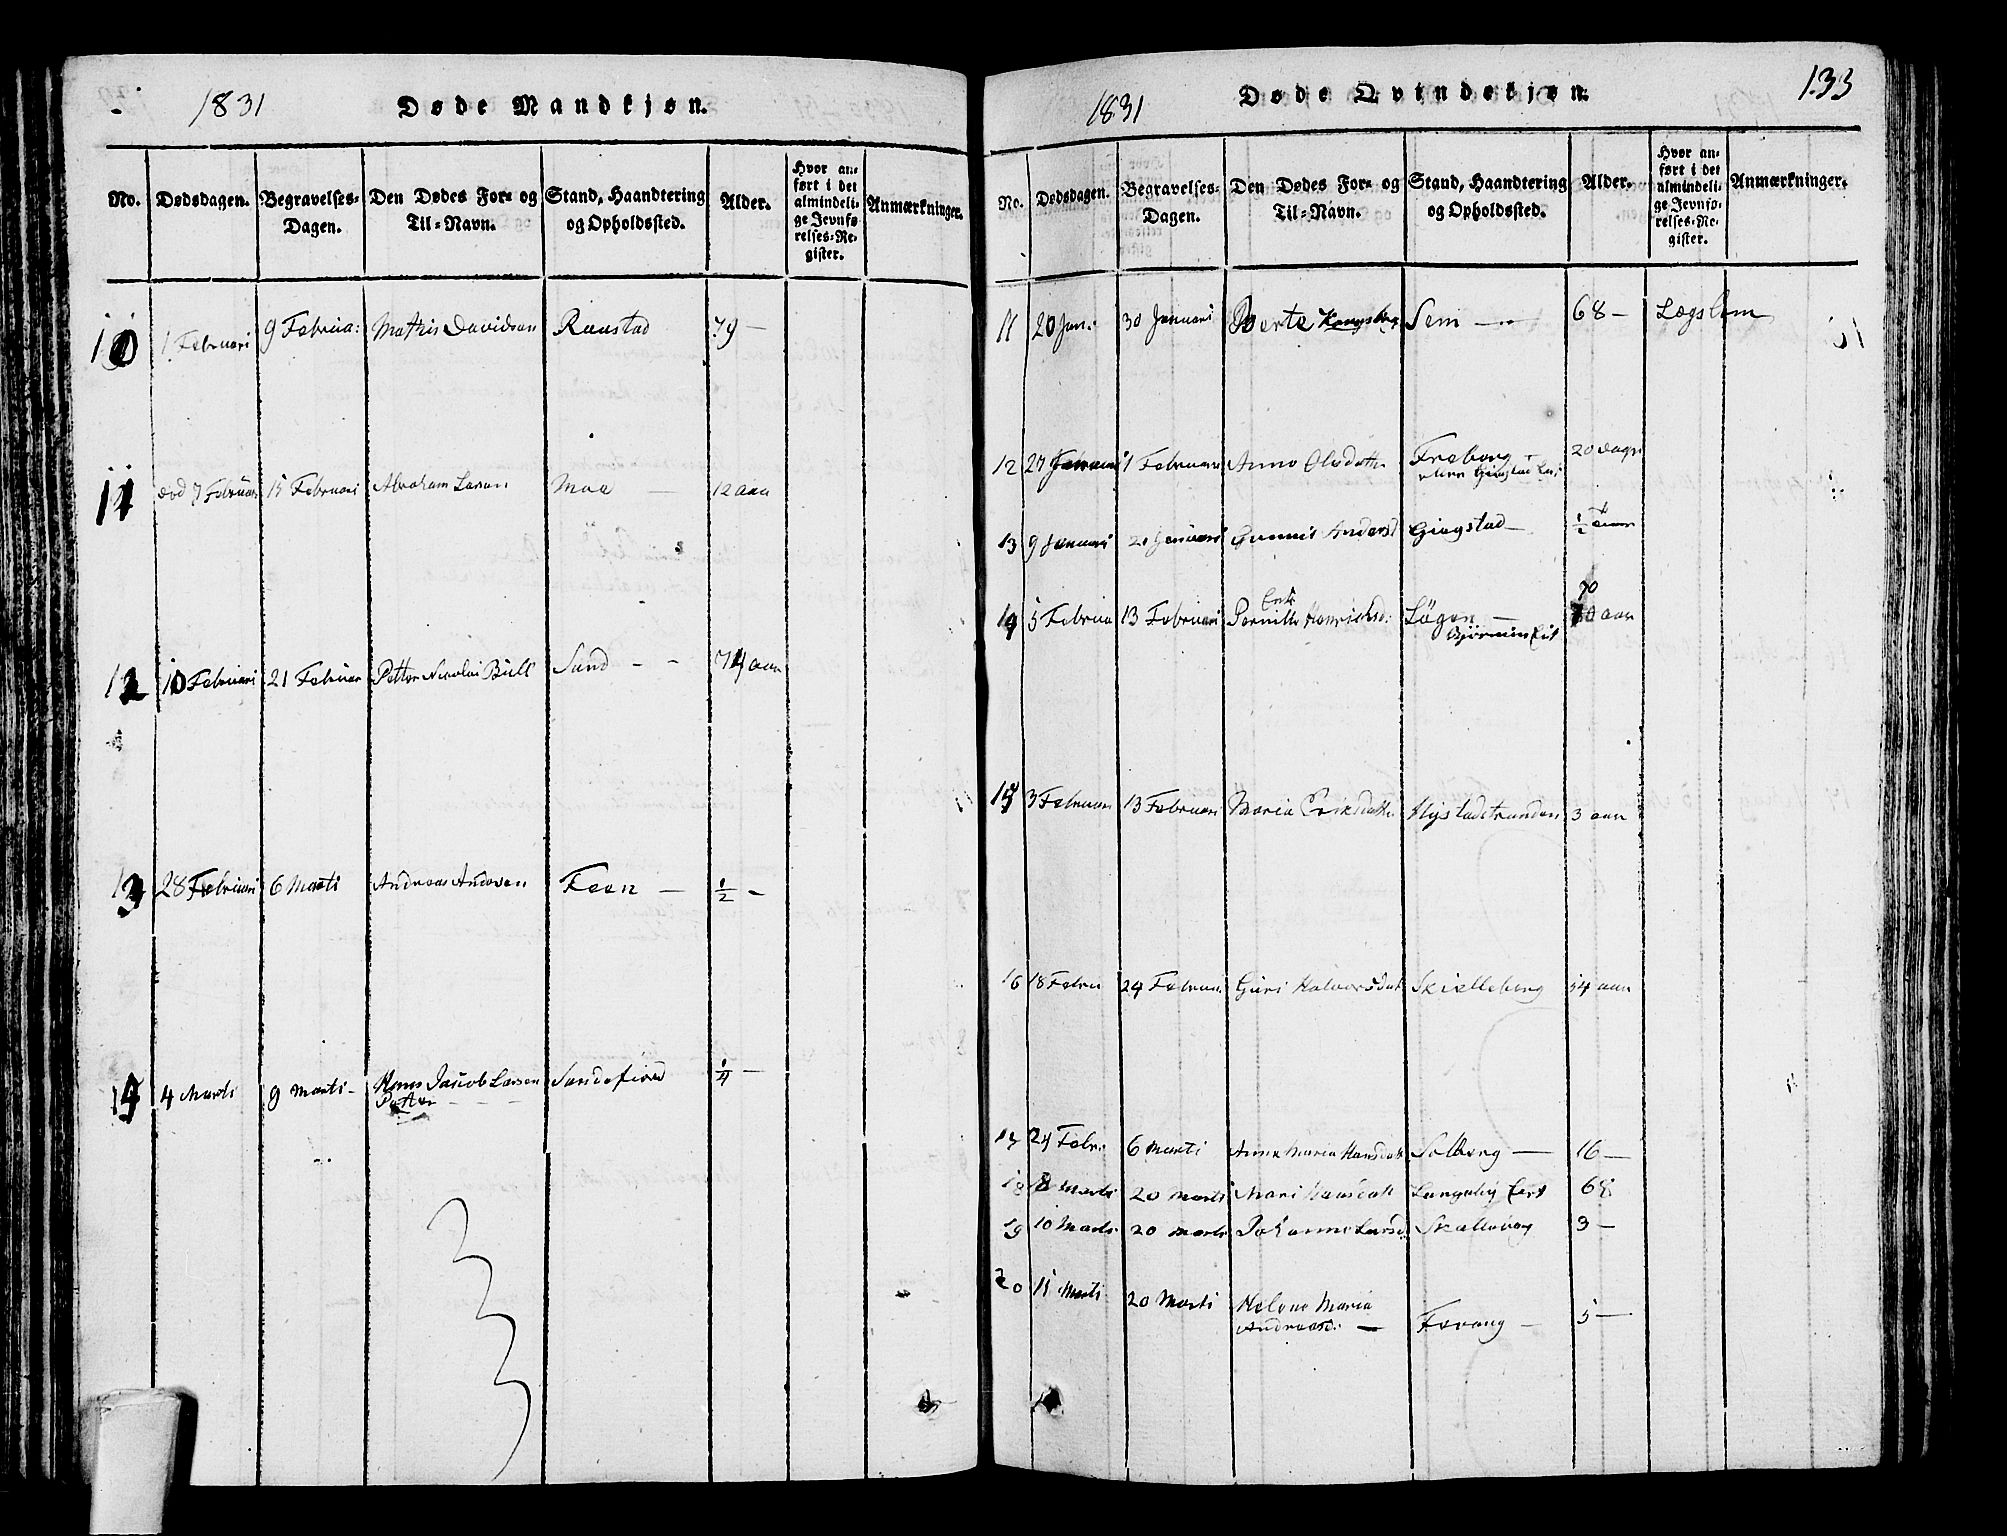 1831 Døde Mandkjøn.
No. Dødsdagen. Begravelses-Dagen. Den Dødes For- og Til-Navn. Stand, Haandtering og Opholdssted. Alder. Hvor anført i det almindelige Jevnførelses-Register. Anmærkninger.
10 1 Februari 9 Februa: Mathis Davidsen Raastad 79 —
11 død 7 Februar 15 Februari Abraham Larsn Moe — 12 aar
12 10 Februari 21 Februar Petter Nicolai Bull Sand - - 74 aar
13 28 Februari 6 Marti Andreas Andersen Feen — 1/2 -
14 4 Marti 9 Marti - Hans Jacob Larsen Sandefiord 1/4 —
1831 Døde Qvindekjøn. 133
No. Dødsdagen. Begravelses-Dagen. Den Dødes For- og Til-Navn. Stand, Haandtering og Opholdssted. Alder. Hvor anført i det almindelige Jevnførelses-Register. Anmærkninger.
11 20 Jan: 30 Januari Berte Sem — 68 — Lægslem
12 27 Januari 1 Februari Anne Olsdatter Freberg 20 dage
13 9 Januari 20 Januari Gunnil Andersd Giegstad — 1/2
Enke
14 5 Februa 13 Februari Pernille Henrichsd: Lögen — 70 aar
15 3 Februari 13 Februari Maria Eriksdatter Hystadstranden 3 aar
16 18 Febru 24 Februar Guri Halvorsdat Skielleberg 54 aar
17 24 Febr. 6 Marti Anne Maria Hansdatt Solberg — 16 —
18 8 Marti 20 Marti Mari Hansdatt Langeby 68
19 10 Marti 20 Marti Johanne Larsd. Skalleberg 3 —
20 11 Marti 20 Marti Helene Maria
Andreasd: — Forvang — 5 —